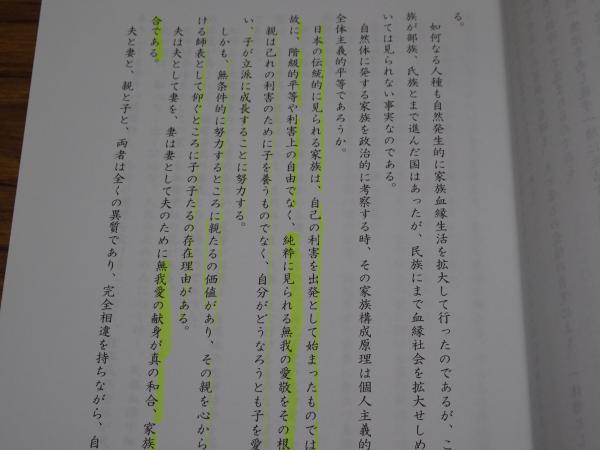 る。
如何なる人種も自然発生的に家族血縁生活を拡大して行ったのであるが、こ
族が部族、民族とまで進んだ国はあったが、民族にまで血縁社会を拡大せしめ
いては見られない事実なのである。
自然体に発する家族を政治的に考察する時、その家族構成原理は個人主義的
全体主義的平等であろうか。
日本の伝統的に見られる家族は、自己の利害を出発として始まったものでは
故に、階級的平等や利害上の自由でなく、純粋に見られる無我の愛敬をその根
親は己れの利害のために子を養うものでなく、自分がどうなろうとも子を愛
い、子が立派に成長することに努力する。
しかも、無条件的に努力するところに親たるの価値があり、その親を心から
ける師表として仰ぐところに子の子たるの存在理由がある。
夫は夫として妻を、妻は妻として夫のために無我愛の献身が真の和合、家族
合である。
夫と妻と、親と子と、両者は全くの異質であり、完全相違を持ちながら、自